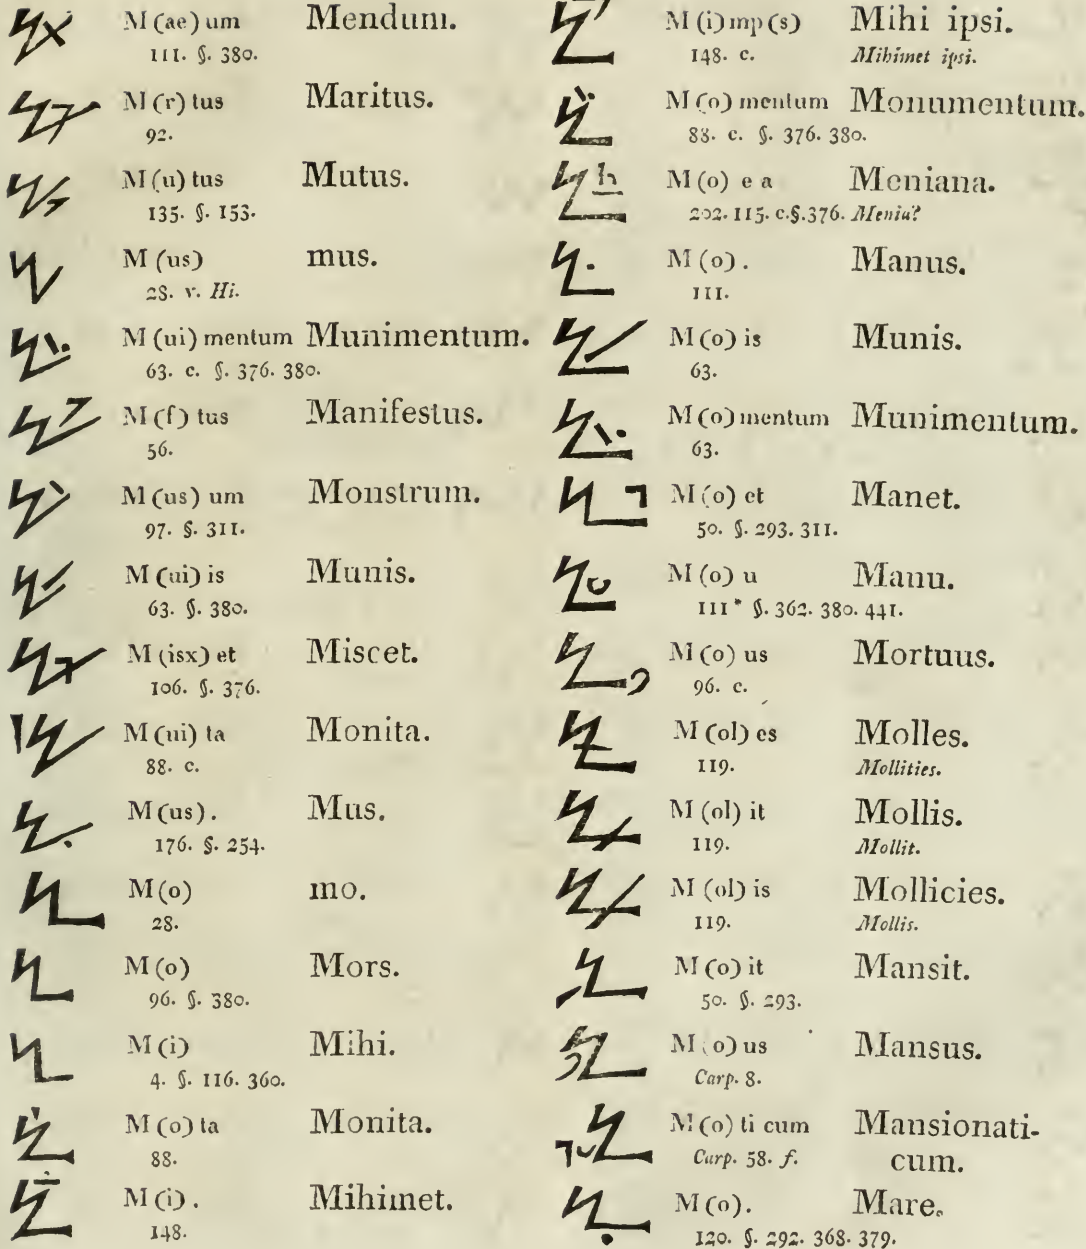 M (ae) um Mendum.
111. §. 380.
M (r) tus Maritus.
92.
M (u) tus Mutus.
135. §. 153.
M (us) mus.
28. v. Hi.
M (ui) mentum Munimentum.
63. c. §. 376. 380.
M (f) tus Manifestus.
56.
M (us) um Monstrum.
97. §. 311.
M (ui) is Munis.
63. §. 380.
M (isx) et Miscet.
106. §. 376.
M (ui) ta Monita.
88. c.
M (us) . Mus.
176. §. 254.
M (o) mo.
28.
M (o) Mors.
96. §. 380.
M (i) Mihi.
4. §. 116. 360.
M (o) ta Monita.
88.
M (i) . Mihimet.
148.
M (i) mp (s) Mihi ipsi.
148. c. Mihimet ipsi.
M (o) mentum Monumentum.
88. c. §. 376. 380.
M (o) e a Meniana.
202. 115. c. §. 376. Menia?
M (o) . Manus.
111.
M (o) is Munis.
63.
M (o) mentum Munimentum.
63.
M (o) et Manet.
50. §. 293. 311.
M (o) u Manu.
111* §. 362. 380. 441.
M (o) us Mortuus.
96. c.
M (ol) es Molles.
119. Mollities.
M (ol) it Mollis.
119. Mollit.
M (ol) is Mollicies.
119. Mollis.
M (o) it Mansit.
50. §. 293.
M (o) us Mansus.
Carp. 8.
M (o) ti cum Mansionati-
Carp. 58. f. cum.
M (o). Mare.
120. §. 292. 368. 379.